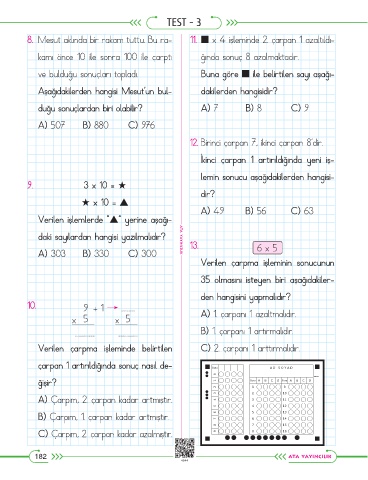 TEST - 3
8. Mesut aklında bir rakam tuttu. Bu ra-
kamı önce 10 ile sonra 100 ile çarptı
ve bulduğu sonuçları topladı.
Aşağıdakilerden hangisi Mesut'un bul-
duğu sonuçlardan biri olabilir?
A) 507 B) 880 C) 976
9.
3 x 10 = ★
★ x 10 = ▲
Verilen işlemlerde "▲" yerine aşağı-
daki sayılardan hangisi yazılmalıdır?
A) 303 B) 330 C) 300
10.
9 + 1 → ......
x 5 x 5
Verilen çarpma işleminde belirtilen
çarpan 1 artırıldığında sonuç nasıl de-
ğişir?
A) Çarpım, 2. çarpan kadar artmıştır.
B) Çarpım, 1. çarpan kadar artmıştır.
C) Çarpım, 2. çarpan kadar azalmıştır.
11. ■ x 4 işleminde 2. çarpan 1 azaltıldı-
ğında sonuç 8 azalmaktadır.
Buna göre ■ ile belirtilen sayı aşağı-
dakilerden hangisidir?
A) 7 B) 8 C) 9
12. Birinci çarpan 7, ikinci çarpan 8'dir.
İkinci çarpan 1 artırıldığında yeni iş-
lemin sonucu aşağıdakilerden hangisi-
dir?
A) 49 B) 56 C) 63
13.
6 x 5
Verilen çarpma işleminin sonucunun
35 olmasını isteyen biri aşağıdakiler-
den hangisini yapmalıdır?
A) 1. çarpanı 1 azaltmalıdır.
B) 1. çarpanı 1 artırmalıdır.
C) 2. çarpanı 1 arttırmalıdır.
AD SOYAD
182
ATA YAYINCILIK